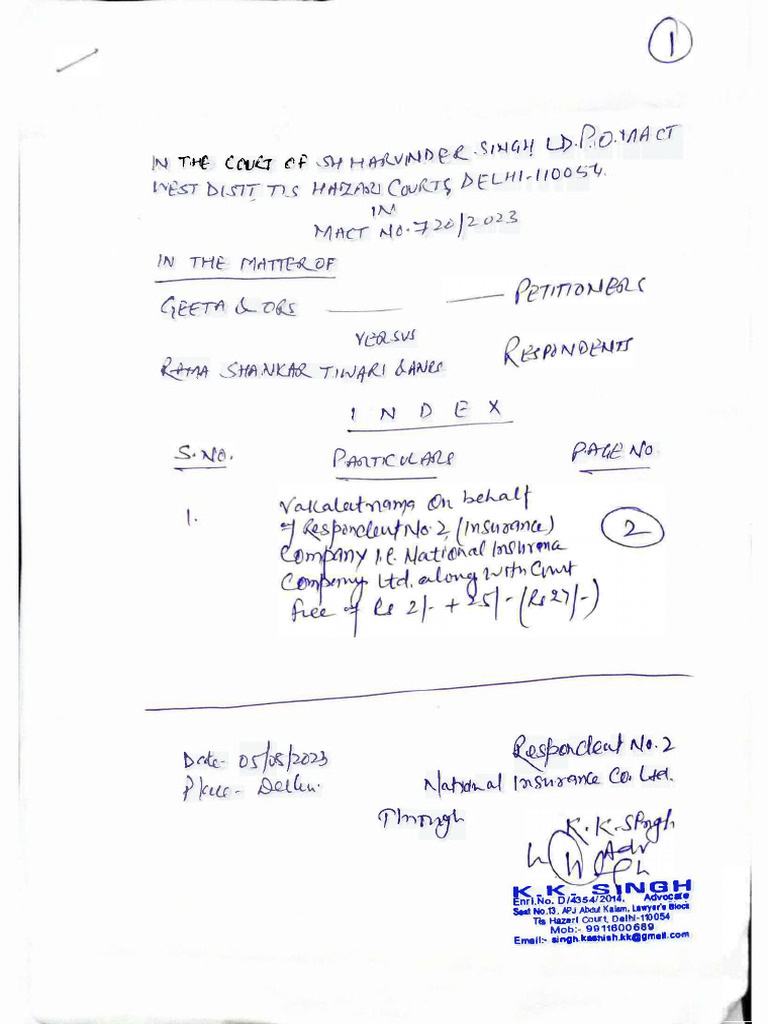 1
IN THE COURT OF SH HARVINDER SINGH, LD. P.O. MACT
WEST DISTT, TIS HAZARI COURTS, DELHI-110054.
IN
MACT NO. 720/2023
IN THE MATTER OF
GEETA & ORS ——— ——— PETITIONERS
VERSUS
RAMA SHANKAR TIWARI & ANRS RESPONDENTS
INDEX
S.NO. PARTICULARS PAGE NO
1. Vakalatnama on behalf
of Respondent No. 2, (Insurance) 2
Company i.e. National Insurance
Company Ltd. along with Court
free of Rs 2/- + 25/- (Rs 27/-)
Respondent No. 2
Date- 05/08/2023
National Insurance Co. Ltd.
Place- Delhi.
Through
K.K. Singh
Adv
K. K. SINGH
Enrl.No. D/4354/2014, Advocate
Seat No.13, APJ Abdul Kalam, Lawyer's Block
Tis Hazari Court, Delhi-110054
Mob:- 9911600689
Email:- singh.kashish.kk@gmail.com